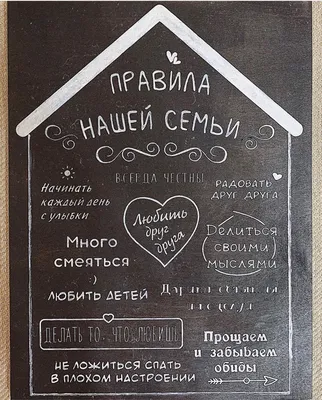 ПРАВИЛА
НАШЕЙ СЕМЬИ
ВСЕГДА ЧЕСТНЫ
Начинать
каждый день
с улыбки
РАДОВАТЬ
ДРУГ ДРУГА
Любить
друг
друга
Делиться
СВОИМИ
МЫСЛЯМИ
Много
смеяться
:)
ЛЮБИТЬ ДЕТЕЙ
ДЕЛАТЬ ТО, ЧТО ЛЮБИШЬ
Прощаем
и забываем
обиды
НЕ ЛОЖИТЬСЯ СПАТЬ
В ПЛОХОМ НАСТРОЕНИИ